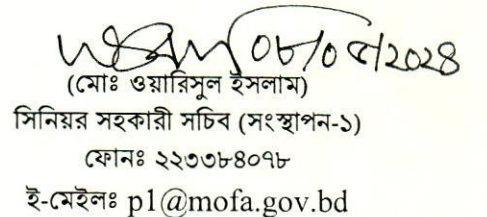 ০৮/০৫/২০২৪
(মোঃ ওয়ারিসুল ইসলাম)
সিনিয়র সহকারী সচিব (সংস্থাপন-১)
ফোনঃ ২২৩৩৮৪০৭৮
ই-মেইলঃ p1@mofa.gov.bd